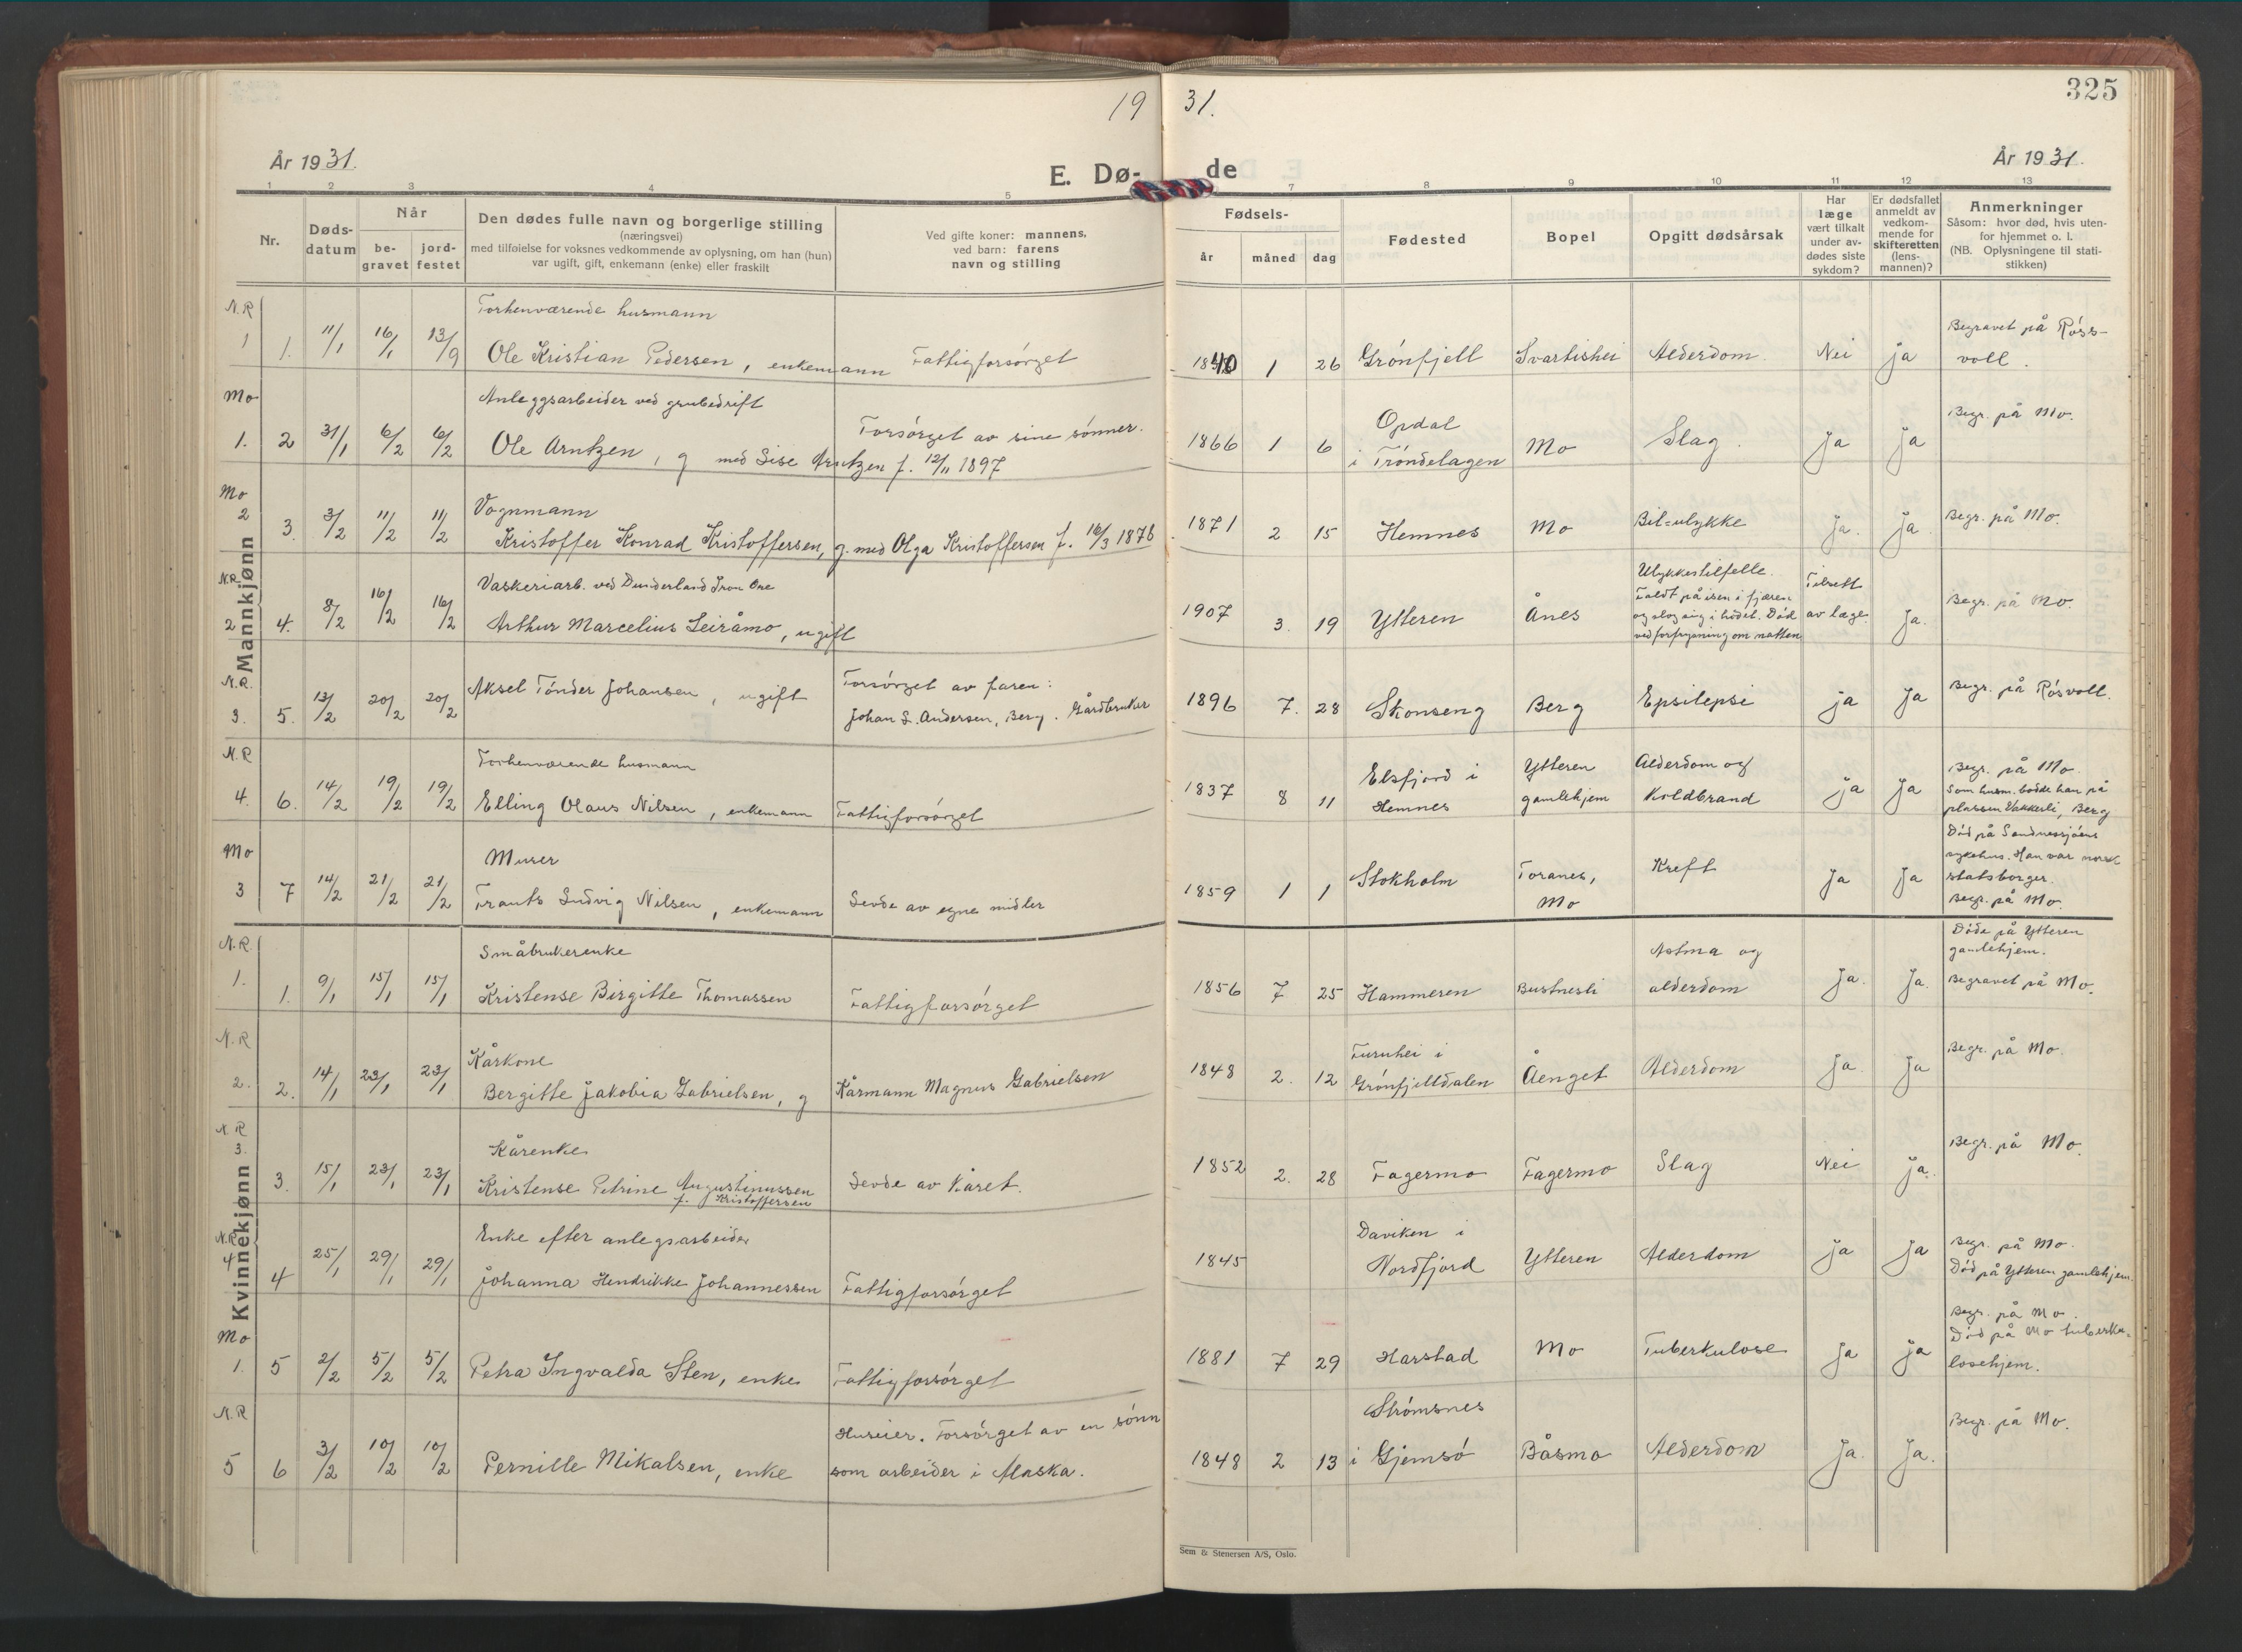 19 31.
325
År 1931.
E. Dø- de
År 1931.
1 2 3 4 5 7 8 9 10 11 12 13
Nr.
Døds-
datum
Når
be-
gravet
jord-
festet
Den dødes fulle navn og borgerlige stilling
(næringsvei)
med tilføielse for voksnes vedkommende av oplysning, om han (hun)
var ugift, gift, enkemann (enke) eller fraskilt
Ved gifte koner: mannens,
ved barn: farens
navn og stilling
Fødsels-
år måned dag
Fødested
Bopel
Opgitt dødsårsak
Har
læge
vært tilkalt
under av-
dødes siste
sykdom?
Er dødsfallet
anmeldt av
vedkom-
mende for
skifteretten
(lens-
mannen)?
Anmerkninger
Såsom: hvor død, hvis uten-
for hjemmet o. l.
(NB. Oplysningene til stati-
stikken)
Mannkjønn
N.R Forhenværende husmann
1 1. 11/1 16/1 13/9 Ole Kristian Pedersen, enkemann Fattigforsørget 1840 1 26 Grønfjell Svartishei Alderdom. Nei ja Begravet på Røss-
voll.
Mo Anleggsarbeider ved grubedrift
1. 2 31/1 6/2 6/2 Ole Arntzen, g med Lise Arntzen f. 12/11 1897 Forsørget av sine sønner. 1866 1 6 Opdal
i Trøndelagen Mo Slag. Ja Ja Begr. på Mo.
Mo Vognmann
2 3. 3/2 11/2 11/2 Kristoffer Konrad Kristoffersen, g. med Olga Kristoffersen f. 16/3 1878 1871 2 15 Hemnes Mo Bil=ulykke Ja. Ja Begr. på Mo.
N.R. Vaskeriarb. ved Dunderland Iron Ore
2 4. 8/2 16/2 16/2 Arthur Marcelius Leiråmo, ugift 1907 3. 19 Ytteren Ånes Ulykkestilfelle.
Faldt på isen i fjæren
og slog sig i hodet. Død
ved forfrysning om natten
Tilsett
av læge Ja. Begr. på Mo.
N.R.
3. 5. 13/2 20/2 20/2 Aksel Tønder Johansen, ugift Forsørget av faren:
Johan L. Andersen, Berg. Gårdbruker 1896 7. 28 Skonseng Berg Epsilepsi ja Ja Begr. på Røsvoll.
N.R Forhenværende husmann
4. 6. 14/2 19/2 19/2 Elling Olaus Nilsen, enkemann Fattigforsørget 1837 8 11 Elsfjord i
Hemnes Ytteren
gamlehjem Alderdom og
Koldbrand ja Ja Begr. på Mo.
Som husm. bodde han på
plassen Vakkerli, Berg
Mo Murer
3 7 14/2 21/2 21/2 Frants Ludvig Nilsen, enkemann Levde av egne midler 1859 1 1 Stokholm Toranes,
Mo Kreft Ja Ja Død på Sandnessjøens
sykehus. Han var norsk
statsborger.
Begr. på Mo.
Kvinnekjønn
N.R. Småbrukerenke
1. 1. 9/1 15/1 15/1 Kristense Birgitte Thomassen Fattigforsørget 1856 7 25 Hammeren Bustnesli Astma og
alderdom Ja. Ja. Døde på Ytteren
gamlehjem.
Begravet på Mo.
N.R Kårkone
2. 2. 14/1 23/1 23/1 Bergitte Jakobia Gabrielsen, g Kårmann Magnus Gabrielsen 1848 2. 12 Furuhei i
Grønfjelldalen Åenget Alderdom Ja. Ja Begr. på Mo.
N.R Kårenke
3. 3. 15/1 23/1 23/1 Kristense Petrine Augustinussen
f. Kristoffersen Levde av Kåret. 1852 2. 28 Fagermo Fagermo Slag Nei ja. Begr. på Mo.
N.R. Enke efter anlegsarbeider
4 4 25/1 29/1 29/1 Johanna Hendrikke Johannessen Fattigforsørget 1845 Daviken i
Nordfjord Ytteren Alderdom Ja Ja Begr. på Mo.
Død på Ytteren gamlehjem.
Mo
1. 5 2/2 5/2 5/2 Petra Ingvalda Sten, enke Fattigforsørget 1881 7 29 Harstad Mo Tuberkulose Ja ja Begr. på Mo.
Død på Mo tuberku-
losehjem.
N.R
5 6 3/2 10/2 10/2 Pernille Mikalsen, enke Huseier. Forsørget av en sønn
som arbeider i Alaska. 1848 2 13 Strømsnes
i Gjemsø Båsmo Alderdom Ja. Ja. Begr. på Mo.
Sem & Stenersen A/S, Oslo.